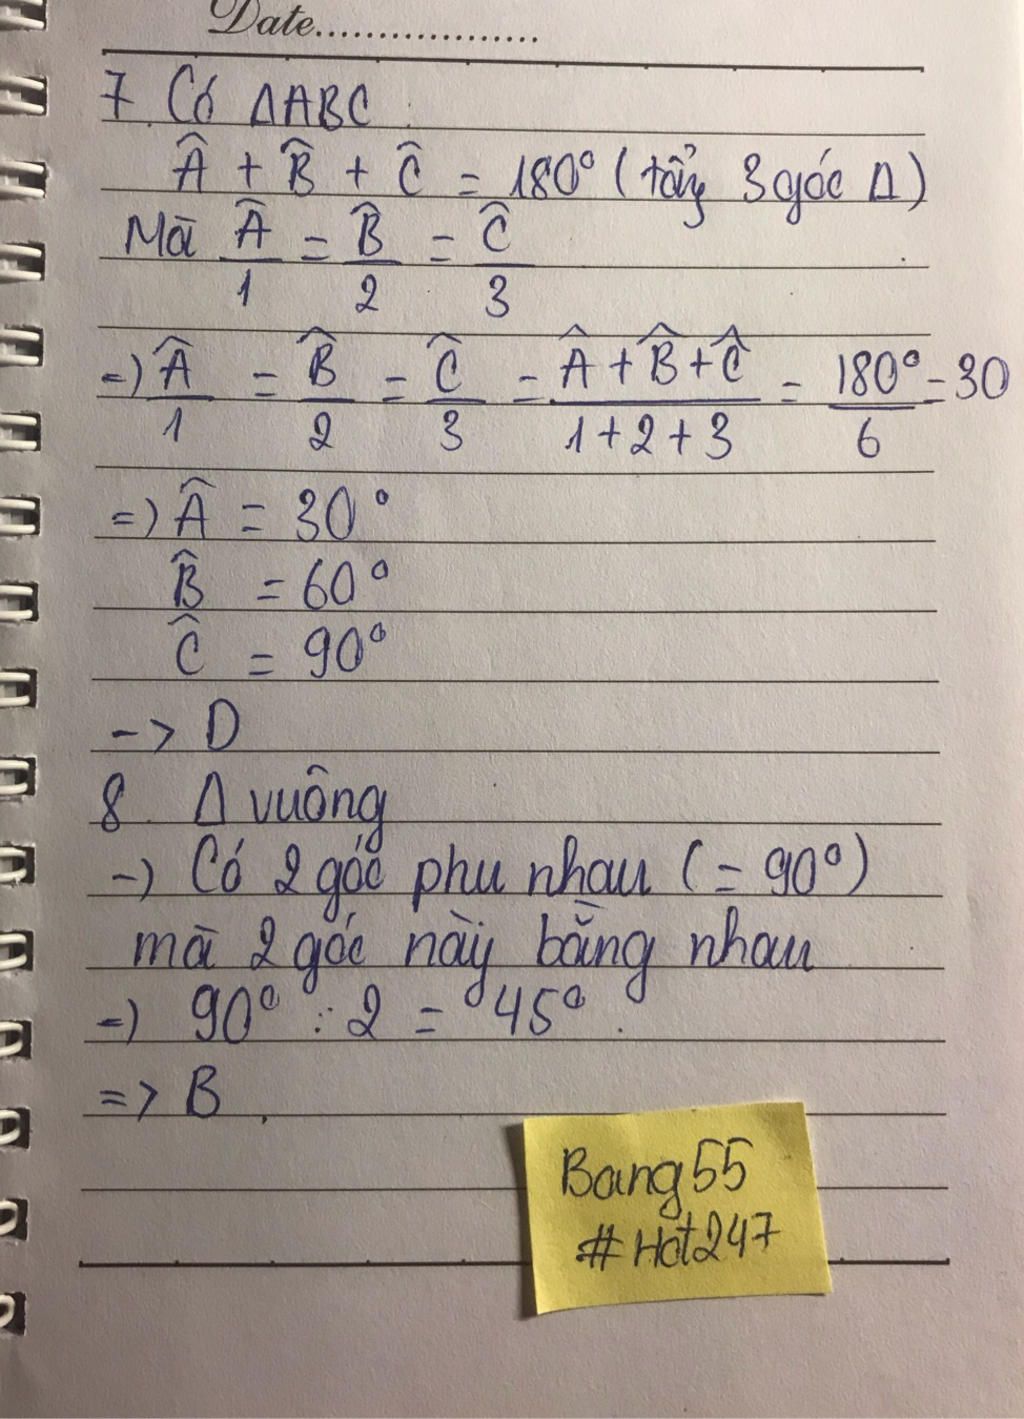 Date..................
7. Có ΔABC
Â + B̂ + Ĉ = 180° (tổng 3 góc Δ)
Mà Â/1 = B̂/2 = Ĉ/3
=) Â/1 = B̂/2 = Ĉ/3 = (Â + B̂ + Ĉ)/(1+2+3) = 180°/6 = 30
=) Â = 30°
B̂ = 60°
Ĉ = 90°
-> D
8. Δ vuông
-) Có 2 góc phu nhau (= 90°)
mà 2 góc này bằng nhau
=) 90° : 2 = 45°.
=> B.
Bang55
#Hot247